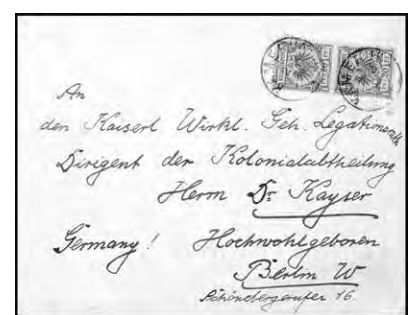 An
den Kaiserl Wirkl. Geh. Legationsrath
Dirigent der Kolonialabtheilung
Herrn Dr. Kayser
Germany! Hochwohlgeboren
Berlin W
Schönebergerufer 16.